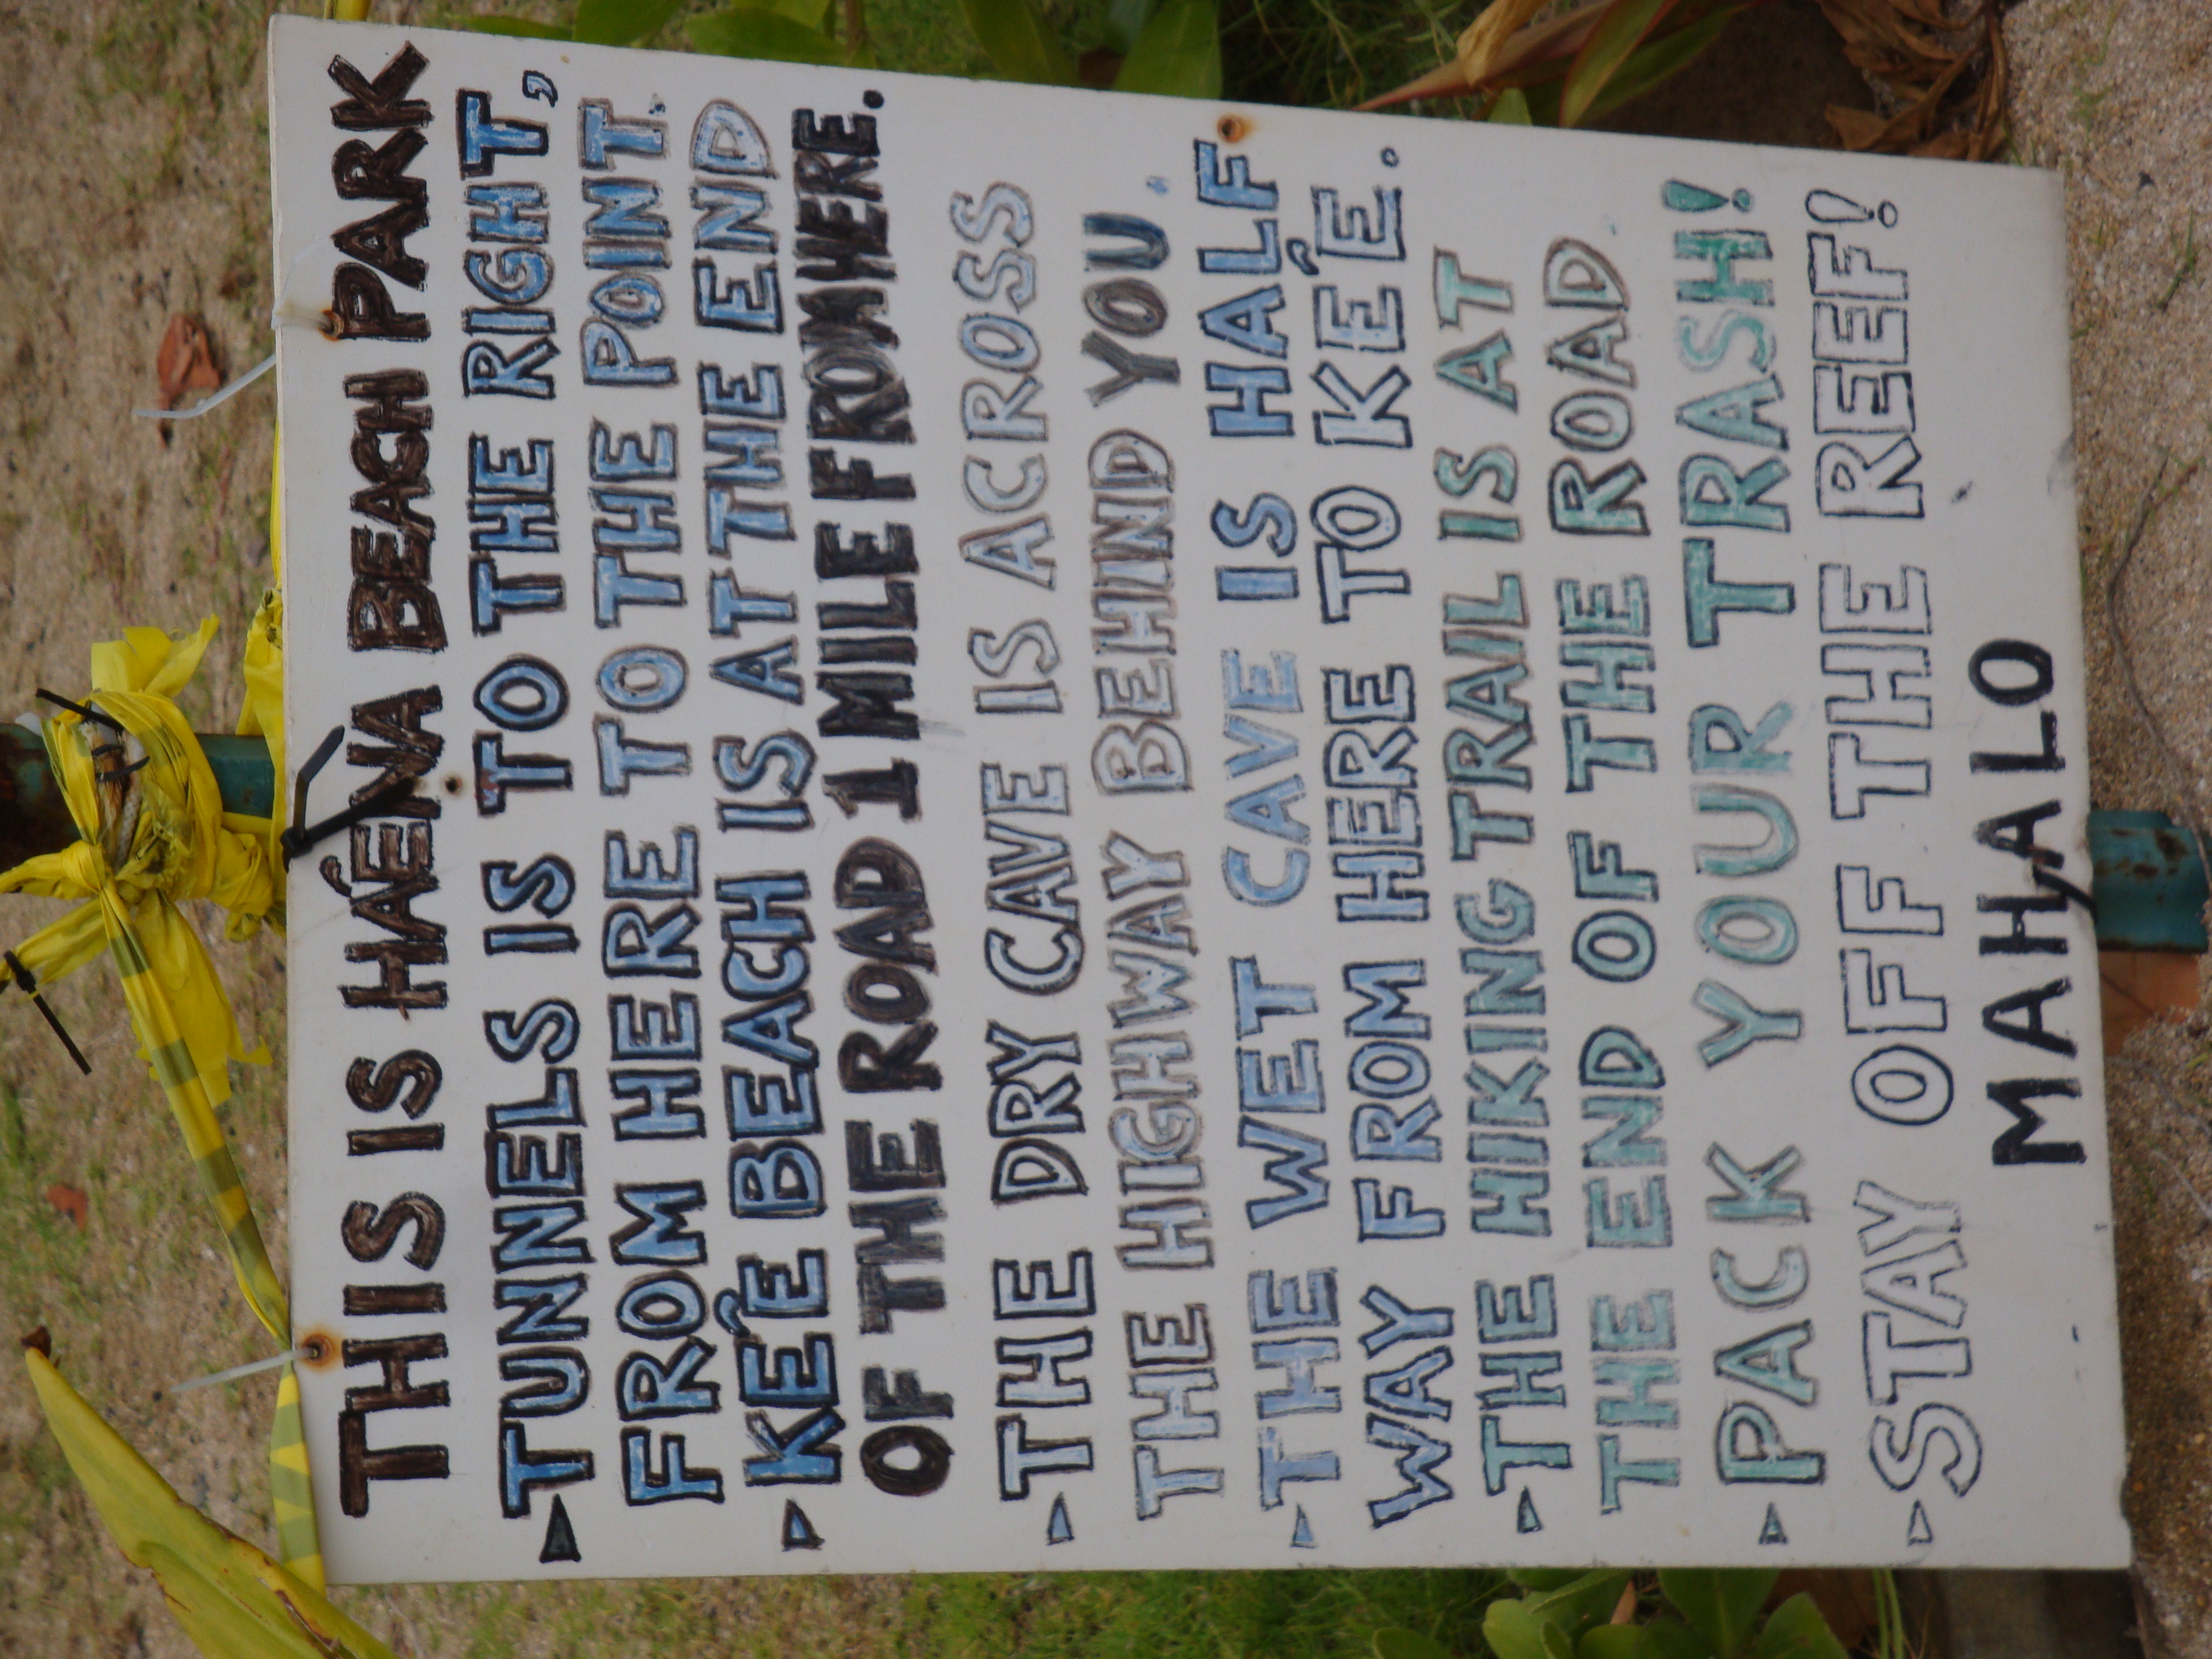 THIS IS HÁENA BEACH PARK
TUNNELS IS TO THE RIGHT,
FROM HERE TO THE POINT.
KÉ'E BEACH IS AT THE END
OF THE ROAD 1 MILE FROM HERE.
THE DRY CAVE IS ACROSS
THE HIGHWAY BEHIND YOU.
THE WET CAVE IS HALF
WAY FROM HERE TO KÉ'E.
THE HIKING TRAIL IS AT
THE END OF THE ROAD
PACK YOUR TRASH!
STAY OFF THE REEF!
MAHALO